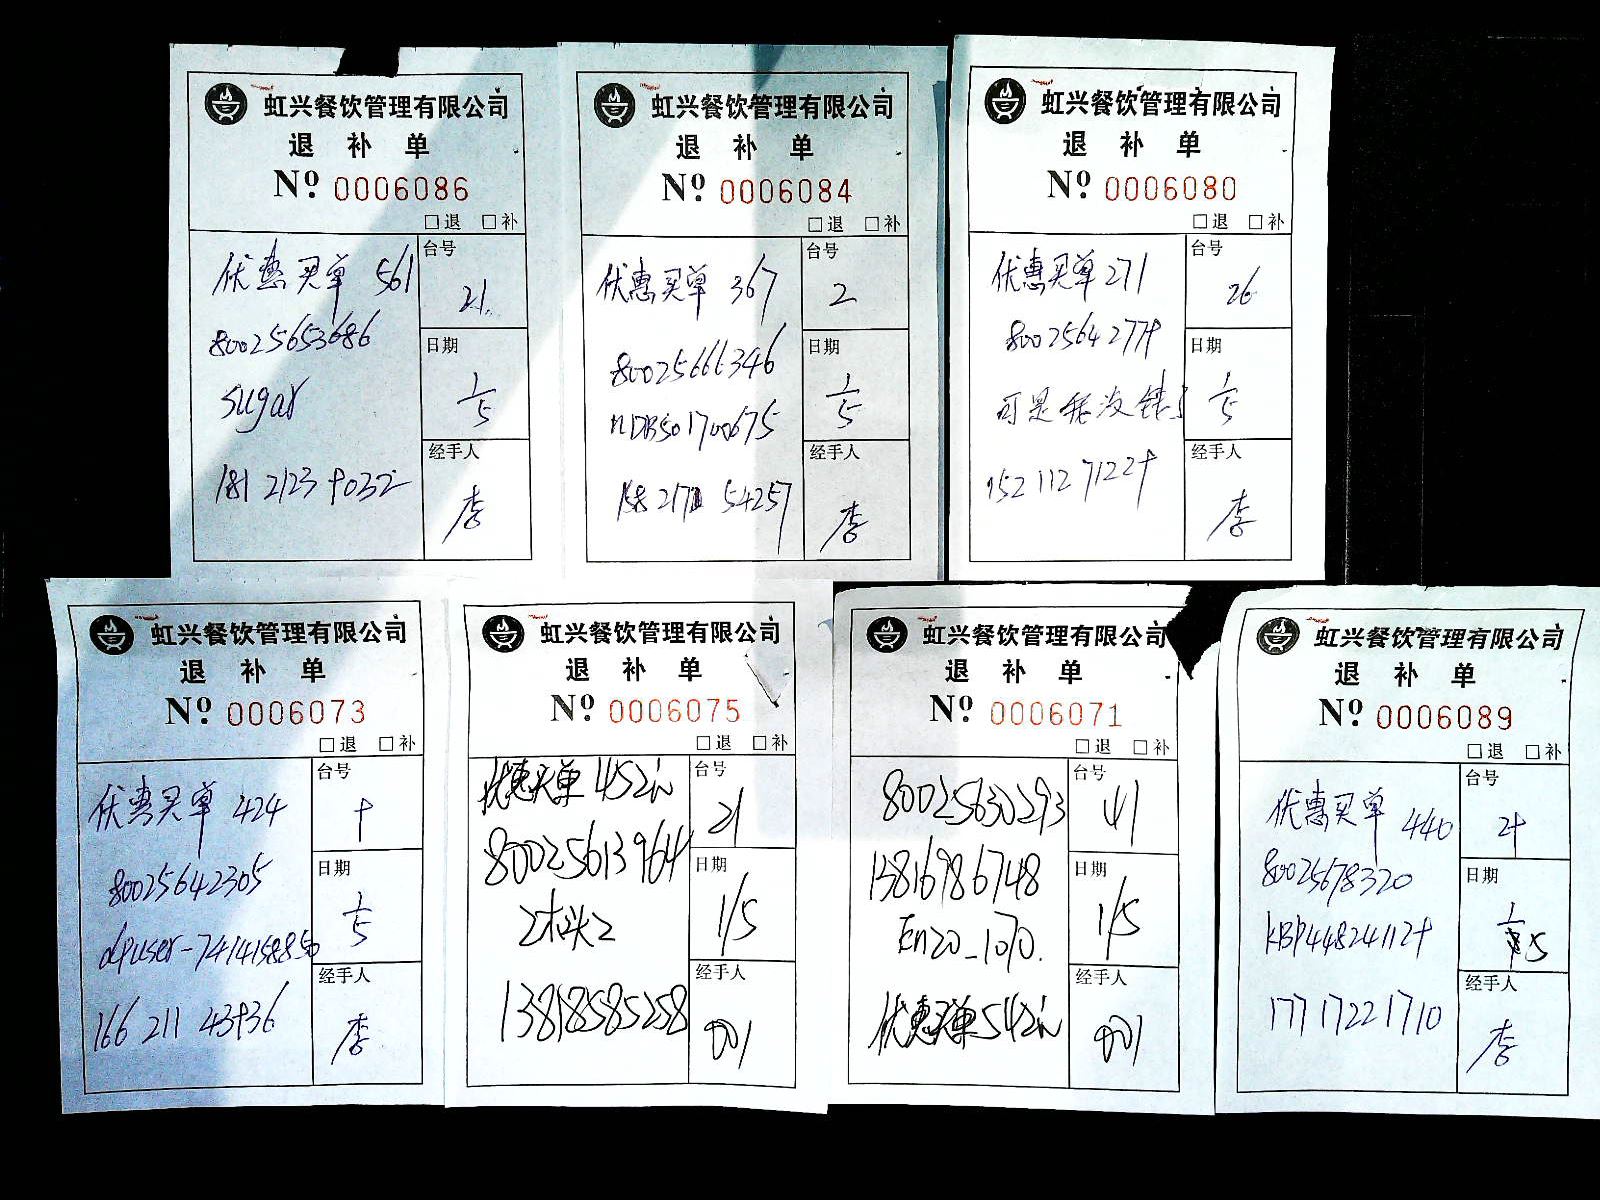 虹兴餐饮管理有限公司
退 补 单
Nº 0006086
□退 □补
优惠买单 561
80025653686
sugar
181 2123 9032
台号
21
日期
1/5
经手人
李
虹兴餐饮管理有限公司
退 补 单
Nº 0006084
□退 □补
优惠买单 367
80025666346
158 2171 54257
台号
2
日期
1/5
经手人
李
虹兴餐饮管理有限公司
退 补 单
Nº 0006080
□退 □补
优惠买单 271
80025642779
152 112 71229
台号
26
日期
1/5
经手人
李
虹兴餐饮管理有限公司
退 补 单
Nº 0006073
□退 □补
优惠买单 424
80025642305
dpuser-7414158850
166 211 43936
台号
9
日期
1/5
经手人
李
虹兴餐饮管理有限公司
退 补 单
Nº 0006075
□退 □补
优惠买单 452元
80025613964
2木头2
13818585258
台号
21
日期
1/5
经手人
001
虹兴餐饮管理有限公司
退 补 单
Nº 0006071
□退 □补
80025630293
13816986748
Enzo_1070.
优惠买单542元
台号
41
日期
1/5
经手人
001
虹兴餐饮管理有限公司
退 补 单
Nº 0006089
□退 □补
优惠买单 440
80025678320
KBP448241129
177 1722 1710
台号
29
日期
1/5
经手人
李